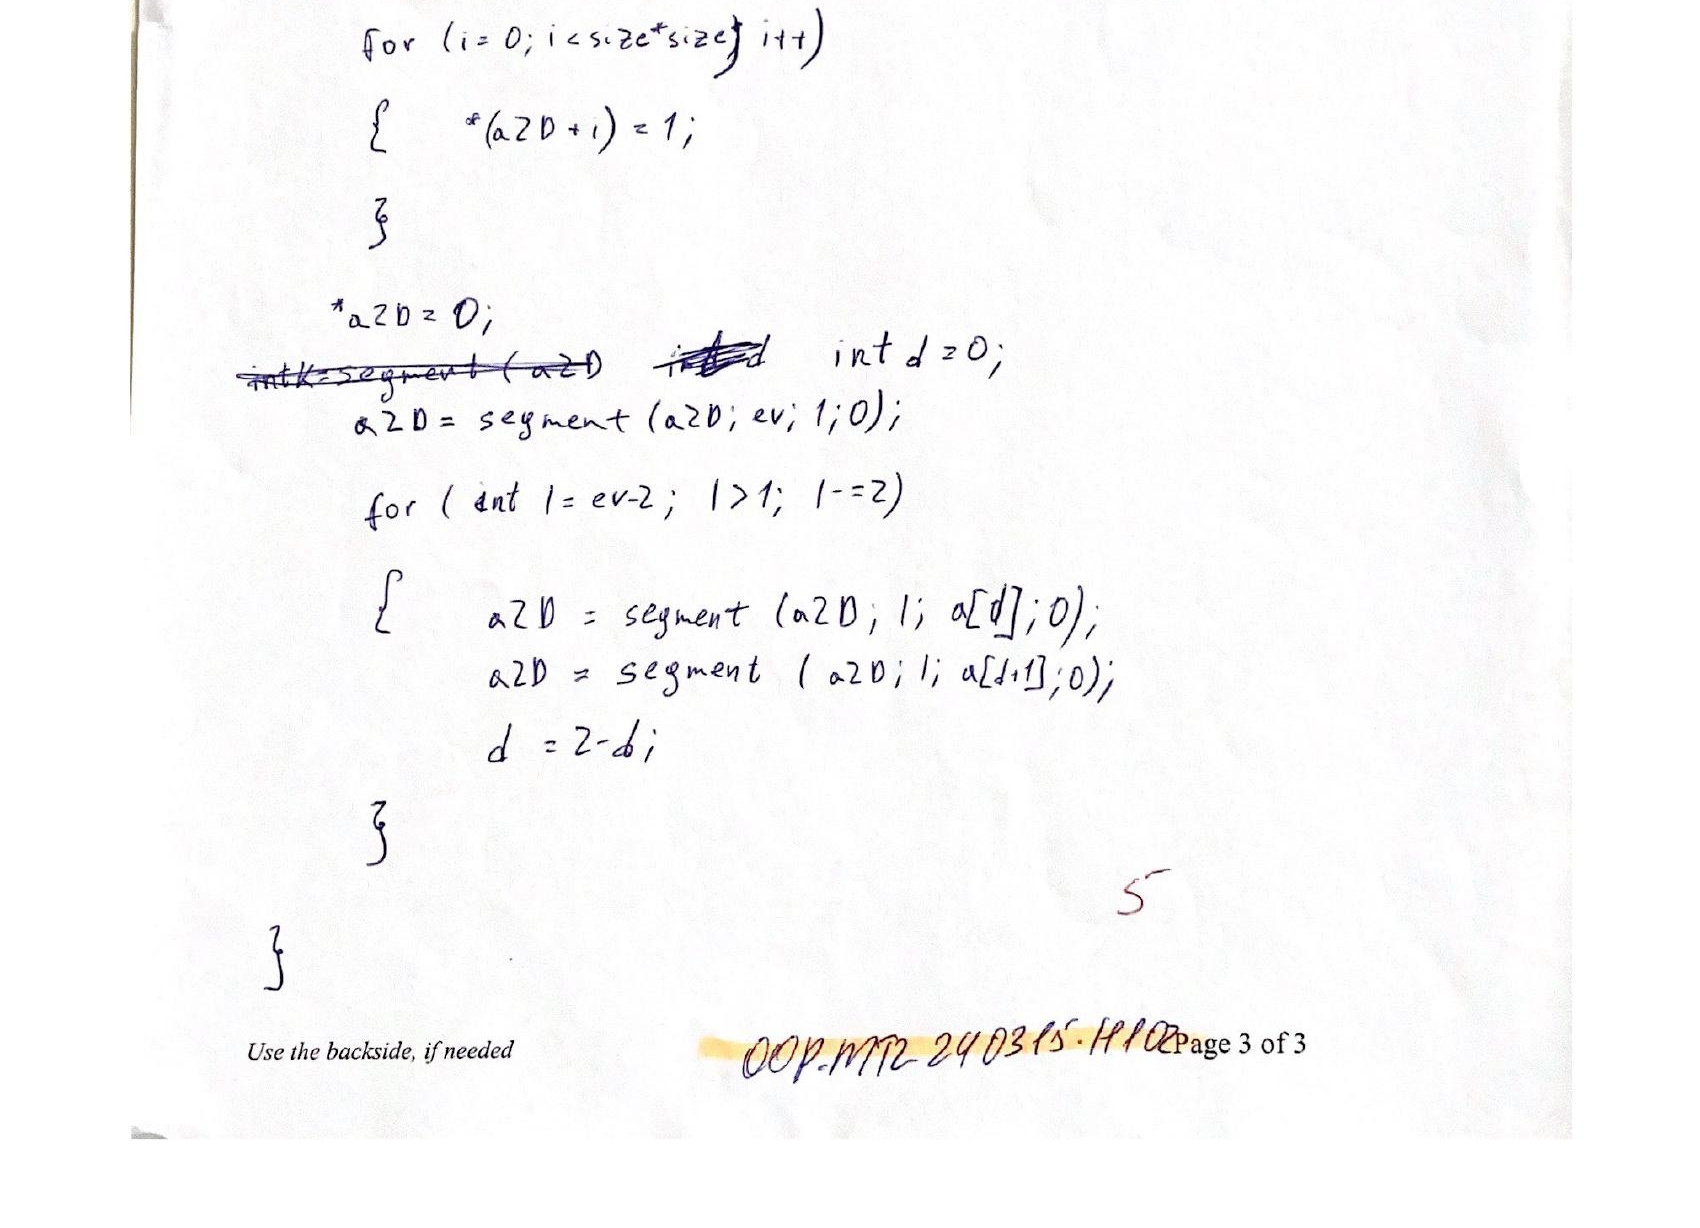 for (i = 0; i < size*size; i++)
{ *(a2D + i) = 1;
}
*a2D = 0;
int k = segment (a2D int d int d = 0;
a2D = segment (a2D; ev; 1; 0);
for ( int l = ev-2; l > 1; l -= 2)
{ a2D = segment (a2D; l; a[d]; 0);
a2D = segment ( a2D; l; a[d+1]; 0);
d = 2-d;
}
5
}
Use the backside, if needed
OOP.MT2 240315.H102 Page 3 of 3